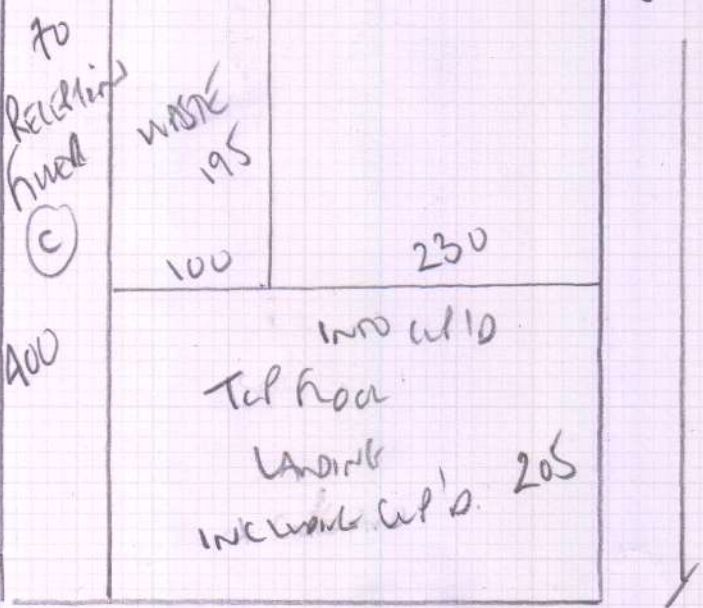 70
RECEPTION
FLOOR
C
400
WASTE
195
100
230
INTO CUP'D
TOP FLOOR
LANDING
INCLUDING CUP'D. 205